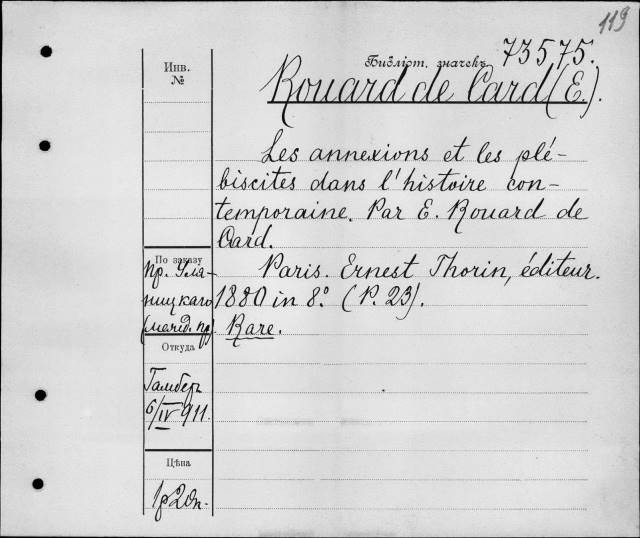 119
Библіот. значекъ 73575.
Rouard de Card (E.).
Инв.
№
Les annexions et les plé-
biscites dans l'histoire con-
temporaine. Par E. Rouard de
Card.
Paris. Ernest Thorin, éditeur.
1880 in 8.° (P. 23).
Rare.
По заказу
Пр. Уля-
ницкаго
(межд. пр.)
Откуда
Гамберъ
6/IV 911.
Цѣна
1р 20к.